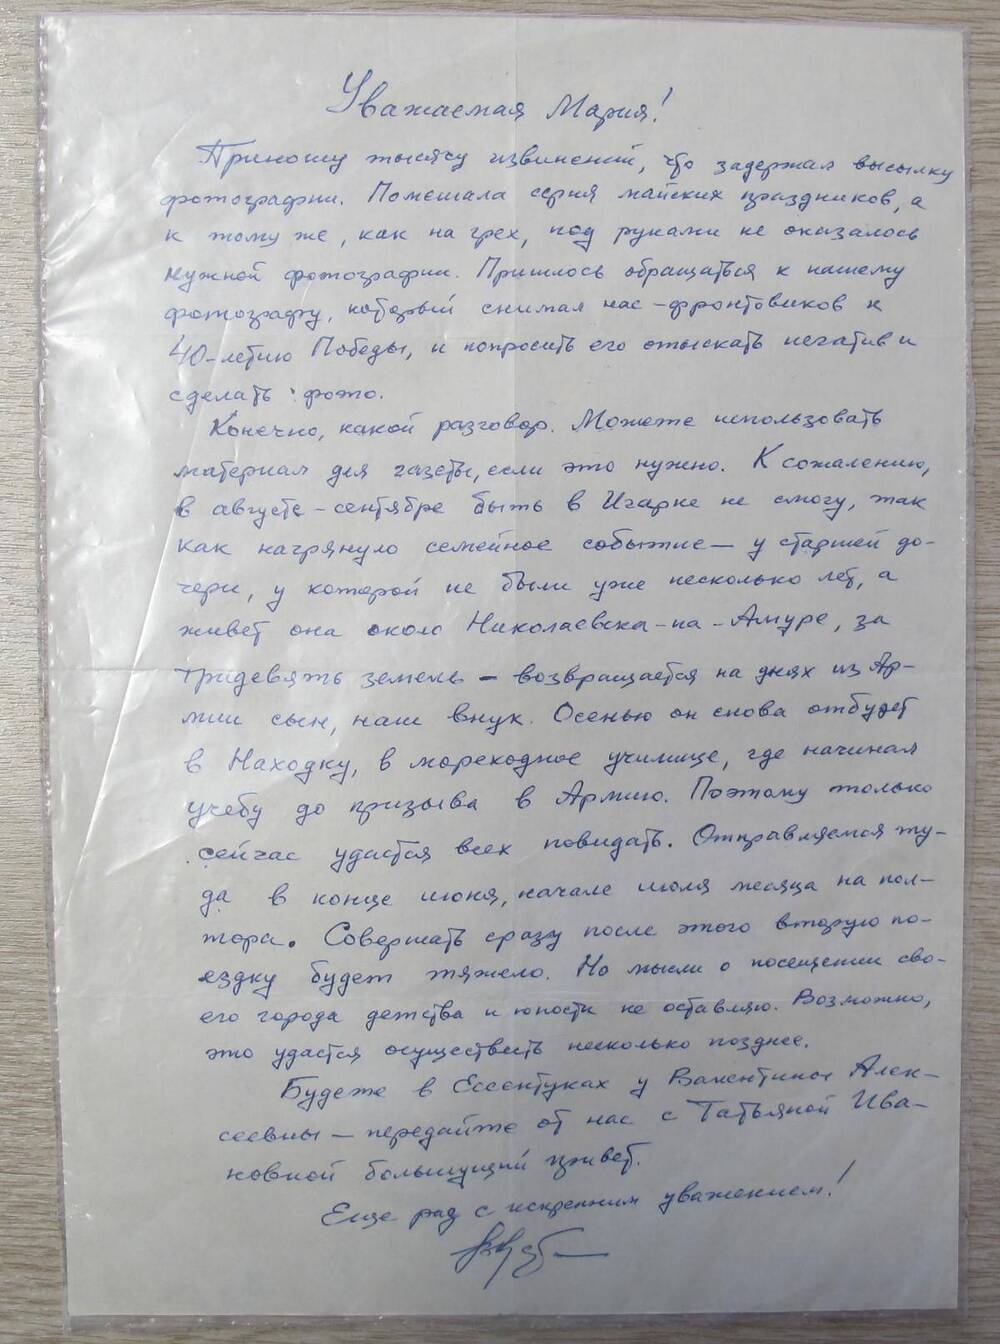 Уважаемая Мария!
Приношу тысячу извинений, что задержал высылку
фотографии. Помешала серия майских праздников, а
к тому же, как на грех, под руками не оказалось
нужной фотографии. Пришлось обращаться к нашему
фотографу, который снимал нас-фронтовиков к
40-летию Победы, и попросить его отыскать негатив и
сделать фото.
Конечно, какой разговор. Можете использовать
материал для газеты, если это нужно. К сожалению,
в августе-сентябре быть в Игарке не смогу, так
как нагрянуло семейное событие — у старшей до-
чери, у которой не были уже несколько лет, а
живет она около Николаевска-на-Амуре, за
тридевять земель – возвращается на днях из Ар-
мии сын, наш внук. Осенью он снова отбудет
в Находку, в мореходное училище, где начинал
учебу до призыва в Армию. Поэтому только
сейчас удастся всех повидать. Отправляемся ту-
да в конце июня, начале июля месяца на пол-
тора. Совершать сразу после этого вторую по-
ездку будет тяжело. Но мысли о посещении сво-
его города детства и юности не оставляю. Возможно,
это удастся осуществить несколько позднее.
Будете в Ессентуках у Валентины Алек-
сеевны – передайте от нас с Татьяной Ива-
новной большущий привет.
Еще раз с искренним уважением!